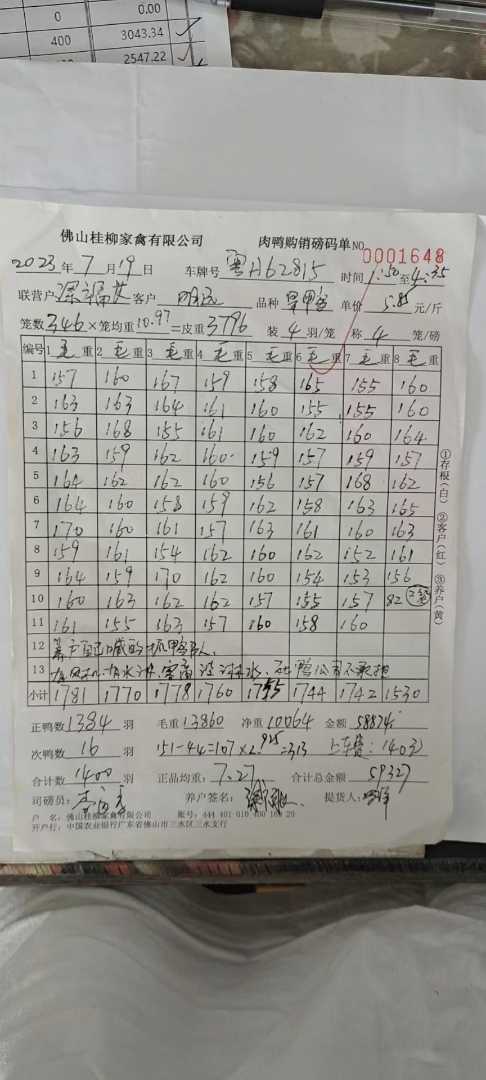 0 0.00
400 3043.34
2547.22
佛山桂柳家禽有限公司 肉鸭购销磅码单NO 0001648
2023年7月19日 车牌号 粤H62815 时间 1:50至4:35
联营户 客户 品种 单价5.85元/斤
笼数346×笼均重10.97=皮重3796 装4羽/笼 称4笼/磅
编号 1毛重 2毛重 3毛重 4毛重 5毛重 6毛重 7毛重 8毛重
1 157 160 167 159 158 165 155 160
2 163 163 164 161 160 155 155 160
3 156 168 155 161 160 162 160 164
4 163 159 162 160 159 157 159 157
5 164 162 162 160 156 157 168 162
6 164 160 158 159 162 158 163 165
7 170 160 161 157 163 161 160 163
8 159 161 154 162 160 162 152 161
9 164 159 170 162 160 154 153 156
10 160 163 162 162 157 155 157 82 2笼
11 161 155 163 157 160 158 160
12
13
小计 1781 1770 1778 1760 1755 1744 1742 1530
①存根(白) ②客户(红) ③养户(黄)
正鸭数1384羽 毛重:13860 净重10064 金额58874元
次鸭数16羽 151-44=107×2.925=313 上车费:140元
合计数1400羽 正品均重:7.27 合计总金额59327
司磅员: 养户签名: 提货人:
户 名:佛山桂柳家禽有限公司 账号:444 401 010 400 20
开户行:中国农业银行广东省佛山市三水区三水支行